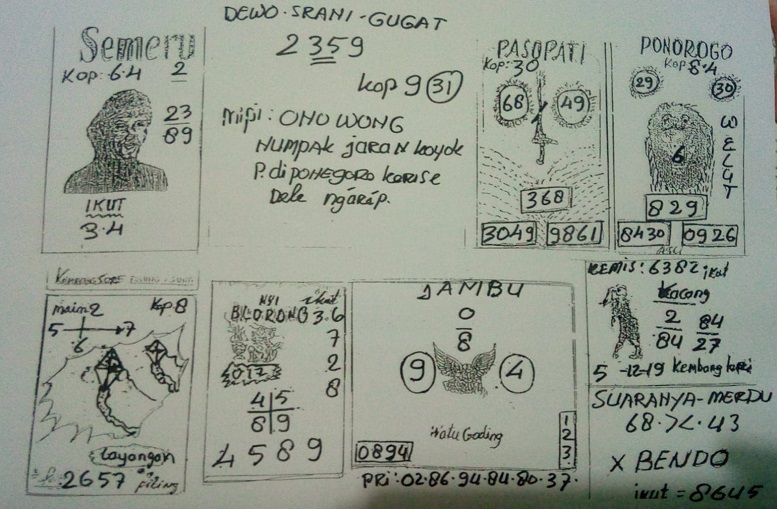 Semeru
Kop: 6·4 2
23
89
IKUT
3·4
DEWO·SRANI-GUGAT
2359
Kop 9 31
Mipi: ONO WONG
NUMPAK jaran koyok
P. diponegoro kerise
Dele ngarep.
PASOPATI
Kop: 30
68 49
368
3049 9861
PONOROGO
Kop 8·4
29 30
6
WELUT
829
8430 0926
KEMBANG SORE
main 2 Kop 8
5 7
6
Layangan
2657
NYI ikut
BLORONG 3.6
7
2
8
012
4 5
8 9
4589
JAMBU
0
8
9 4
Watu Gading
1
2
3
0894
PRI: 02·86·94·84·80·37·
KEMIS: 6382 ikut
Kacang
2 84
84 27
5-12-19 Kembang kopi
SUARANYA-MERDU
68·><·43
X BENDO
ikut = 8645